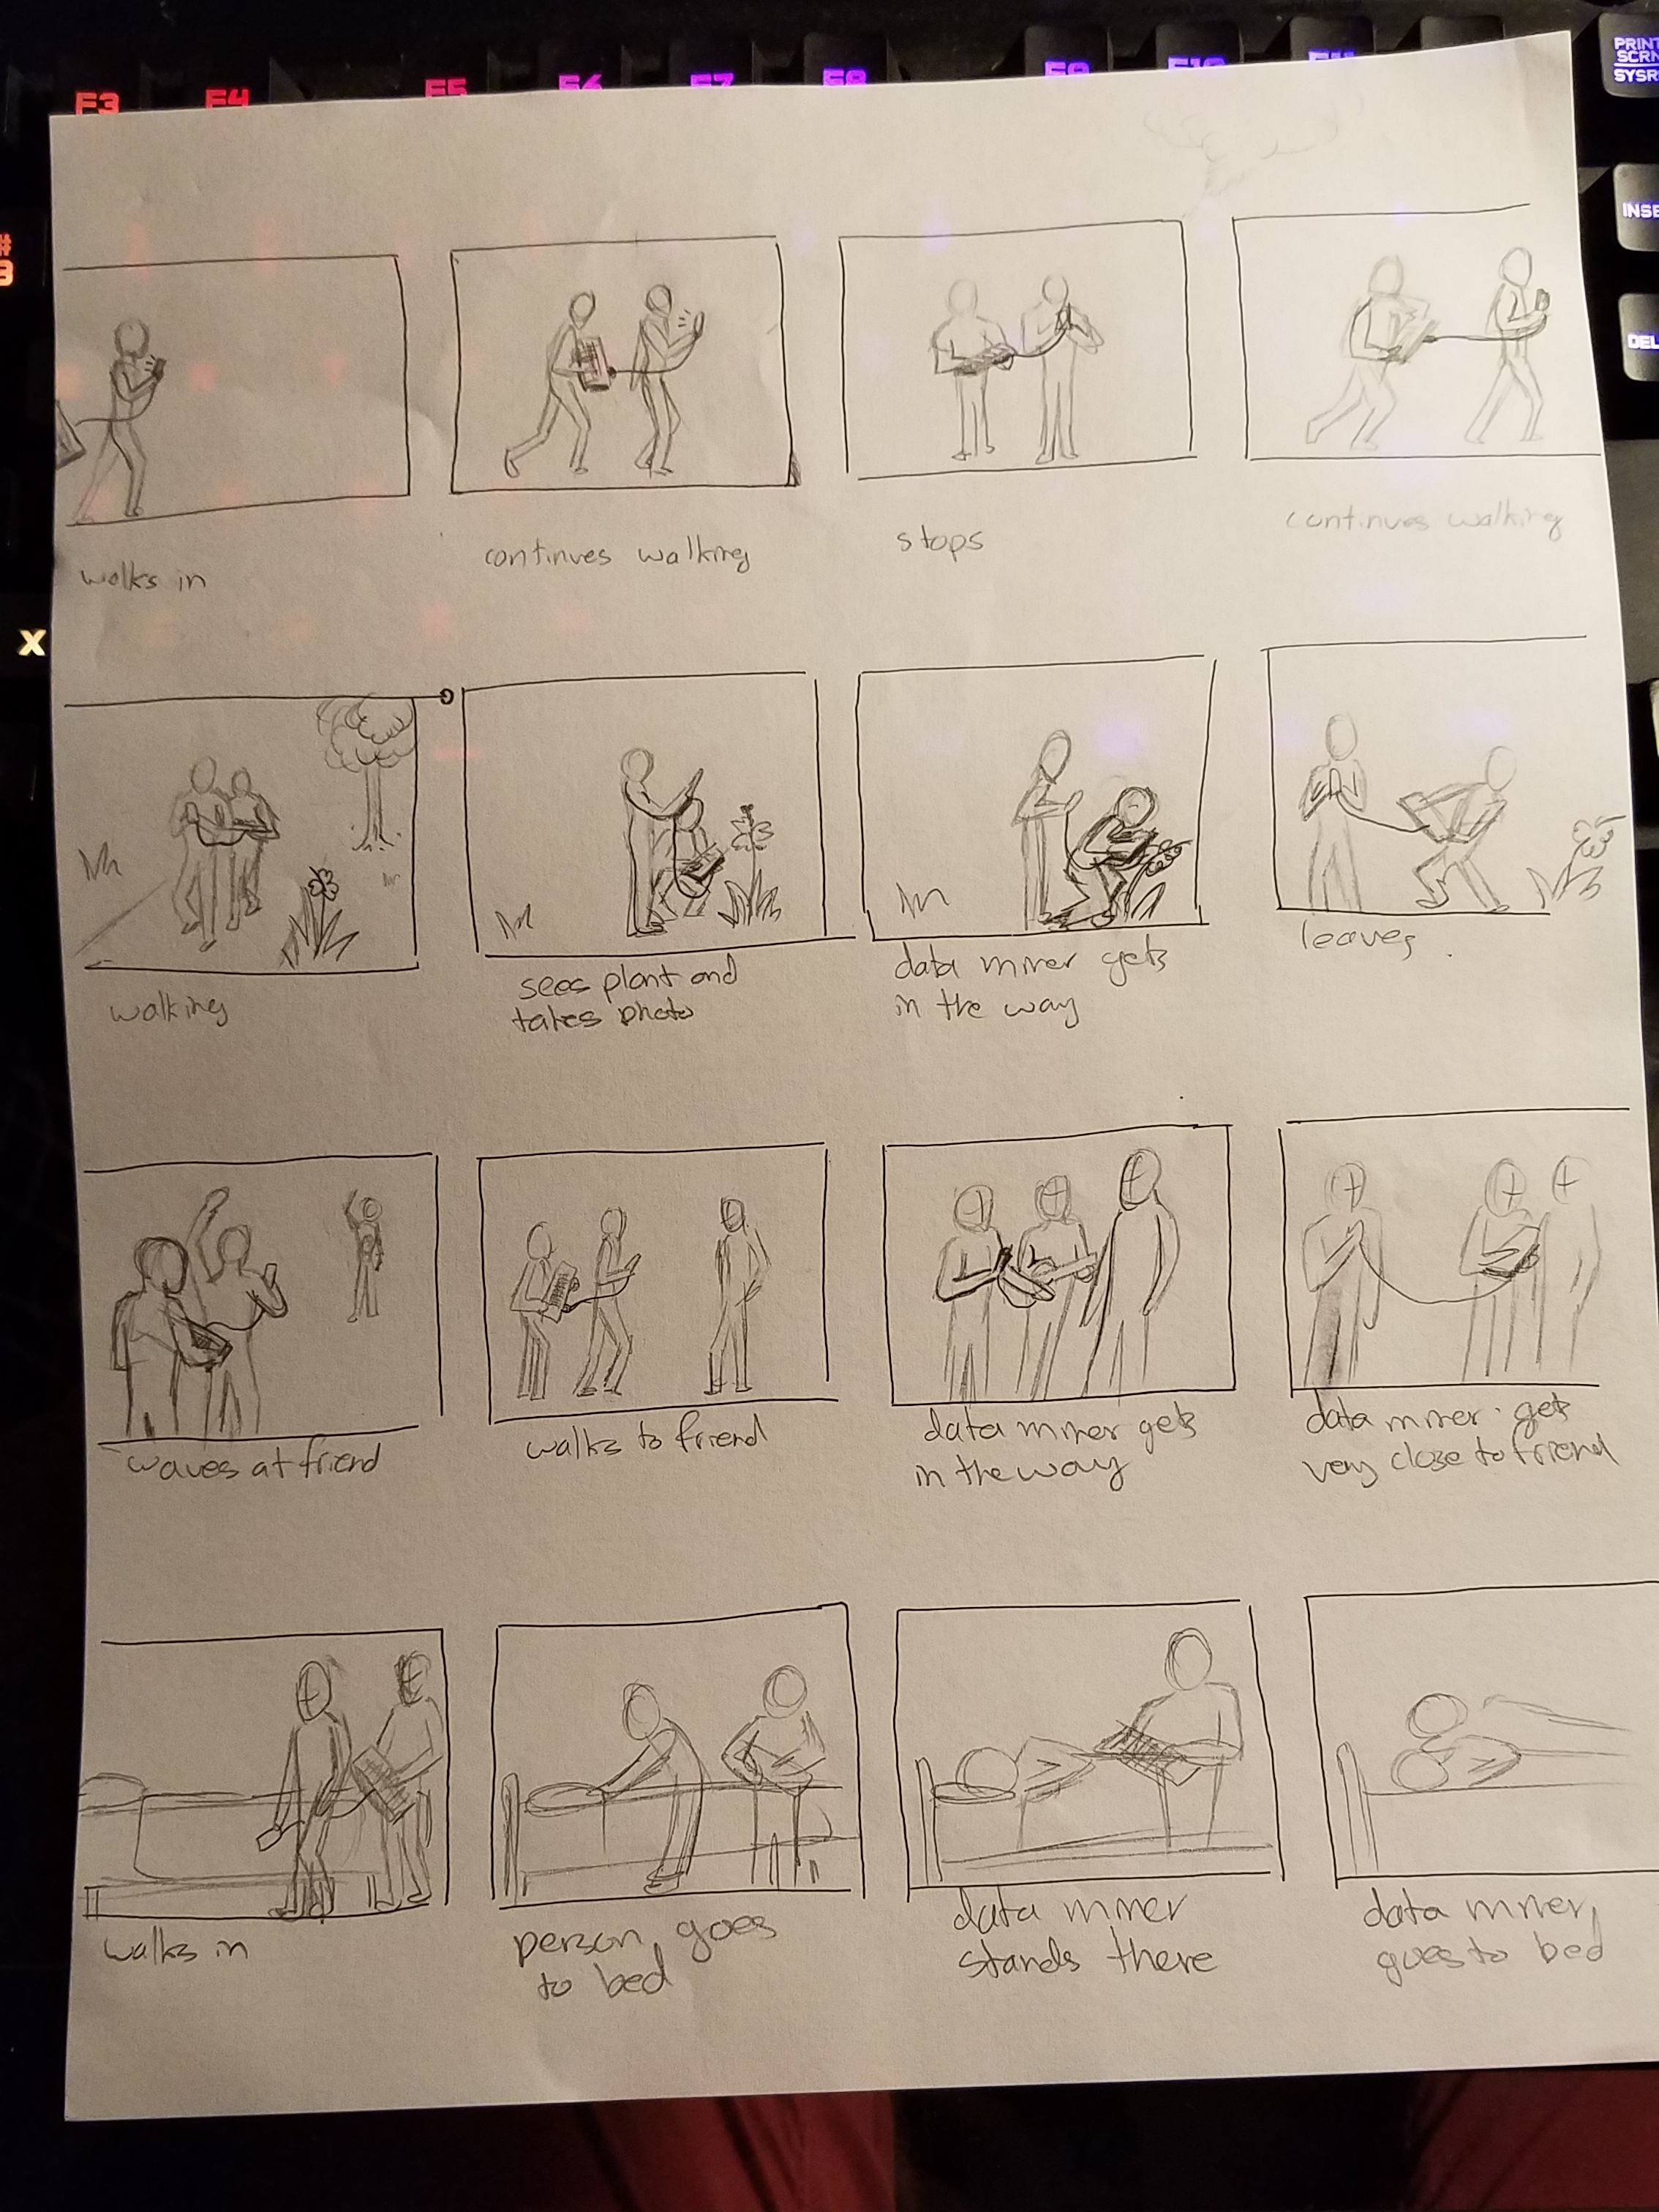 F3 F4 F5 F6 F7 F8 F9 F10 F11 PRINT
SCRN
SYSR
#
3
INSE
DEL
X
walks in
continues walking
stops
continues walking
walking
sees plant and
takes photo
data miner gets
in the way
leaves
waves at friend
walks to friend
data miner gets
in the way
data miner gets
very close to friend
walks in
person goes
to bed
data miner
stands there
data miner
goes to bed